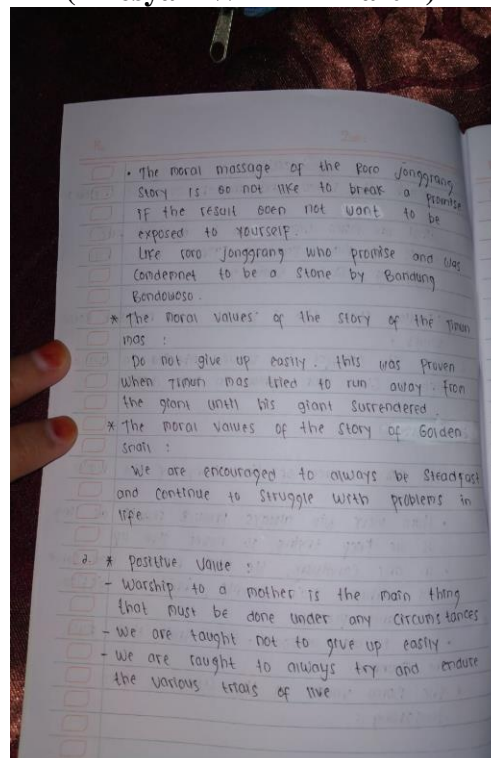 • The moral massage of the Roro Jonggrang
story is so not like to break a promise
if the result soen not want to be
exposed to yourself.
Like roro jonggrang who promise and was
condemnet to be a stone by Bandung
Bondowoso.
* The moral values of the story of the Timun
mas :
Do not give up easily. this was proven
when Timun mas tried to run away from
the giant until his giant surrendered.
* The moral values of the story of Golden
snail :
We are encouraged to always be steadfast
and continue to struggle with problems in
life
2. * positive value :
- Warship to a mother is the main thing
that must be done under any circumstances
- we are taught not to give up easily.
- we are taught to always try and endure
the various trials of live